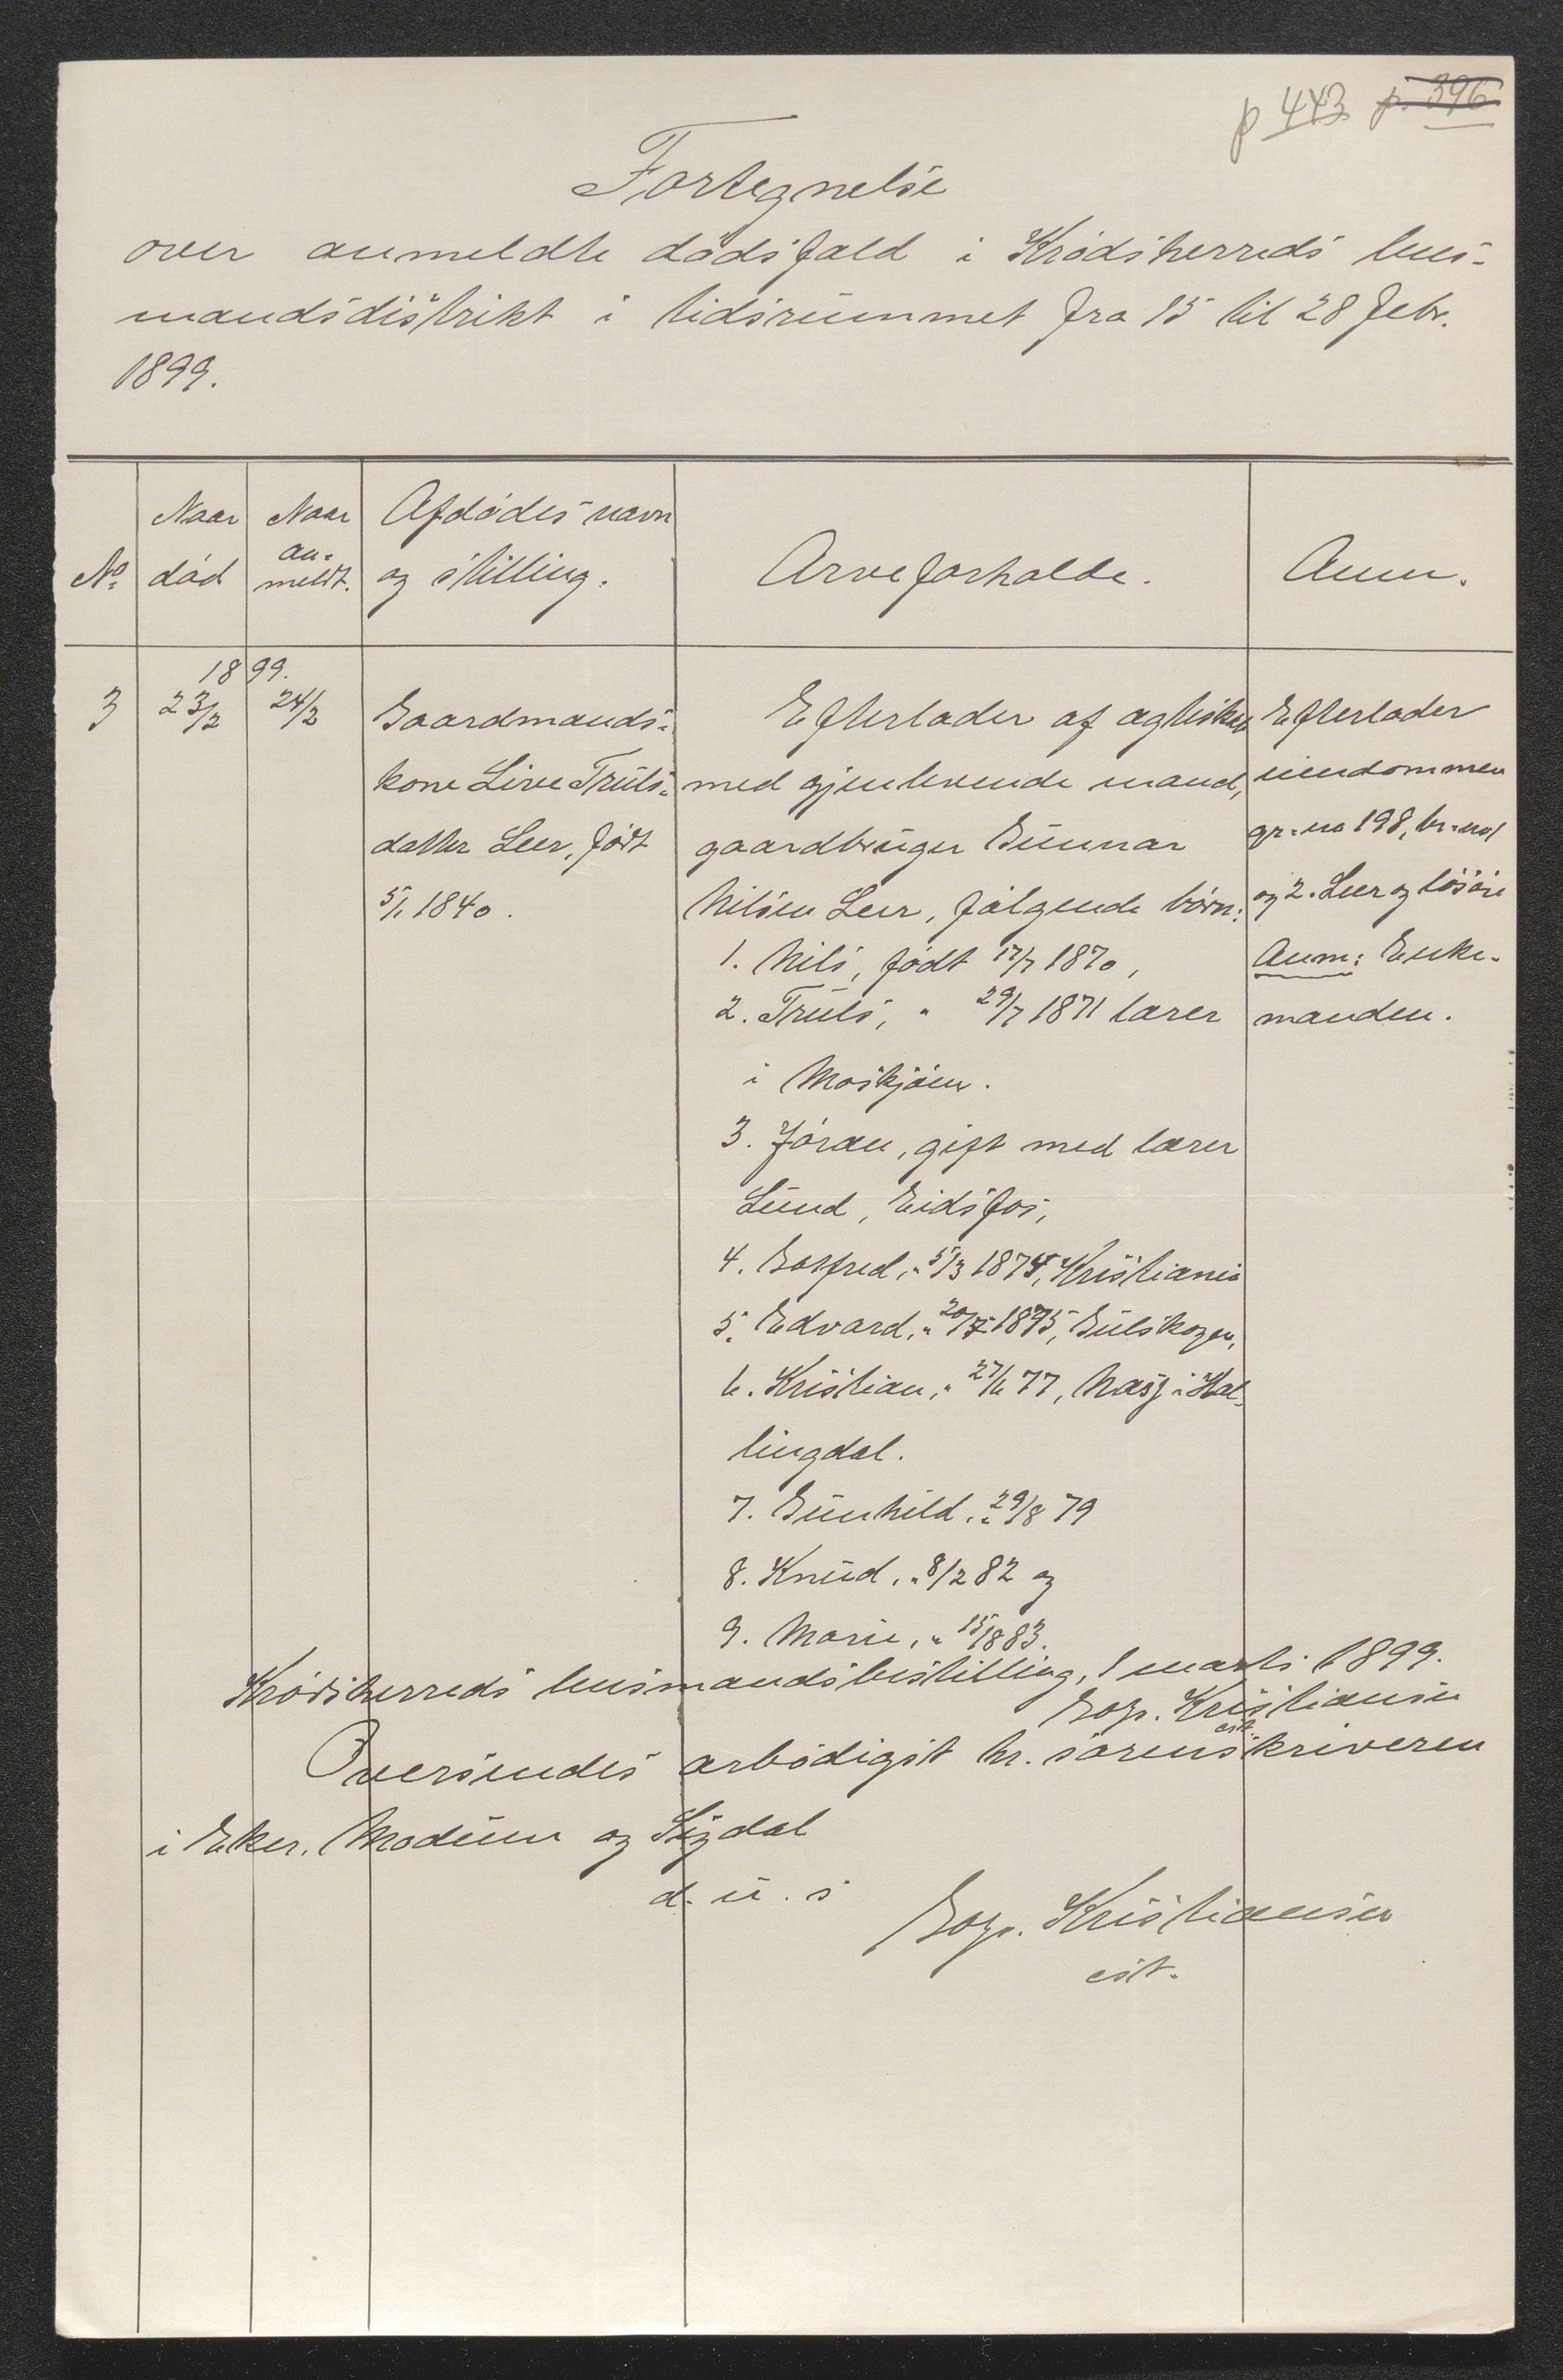 p 443 p. 396
Fortegnelse
over anmeldte dødsfald i Krødsherreds lens-
mandsdistrikt i tidsrummet fra 15 til 28 febr.
1899.
No Naar død Naar an-meldt. Afdødes navn og stilling. Arveforholde. Anm.
1899.
3 23/2 24/2
Gaardmands-
kone Live Truls-
datter Leer, født
5/1 1840.
Efterlader af ægteskab
med gjenlevende mand,
gaardbruger Gunnar
Nilsen Leer, følgende børn:
1. Nils, født 17/7 1870,
2. Truls, " 29/7 1871 lærer
i Moskjøen.
3. Jøran, gift med lærer
Lund, Eidsfos,
4. Gotfred, " 5/3 1874, Kristiania
5. Edvard, " 20/7 1875, Gulskogen,
6. Kristian, " 27/6 77, Næs i Hal-
lingdal.
7. Gunhild, " 29/8 79
8. Knud, " 8/2 82 og
9. Marie, " 15/8 83.
Efterlader
eiendommen
gr-no 198, br-no 1
og 2. Leer og løsøre
Anm: Enke-
manden.
Krødsherreds lensmandsbestilling, 1 marts 1899.
Kristiansen
cst.
Oversendes ærbødigst hr. sorenskriveren
i Eker, Modum og Sigdal
d. u. s
Kristiansen
cst.